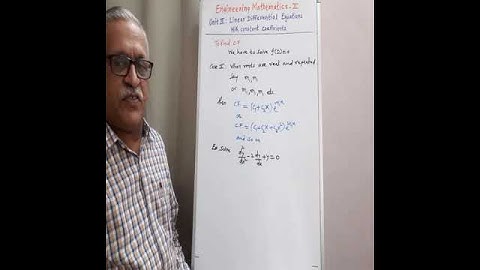 Engineering Mathematics-II
Unit II: Linear Differential Equations
with constant coefficients
To find CF
We have to solve f(D)=0
Case II: When roots are real and repeated
say m₁, m₁
or m₁, m₁, m₁ etc
Then CF = (c₁+c₂x) e^{m₁x}
or
CF = (c₁+c₂x+c₃x²) e^{m₁x}
and so on
Ex. Solve d²y/dx² - 2 dy/dx + y = 0